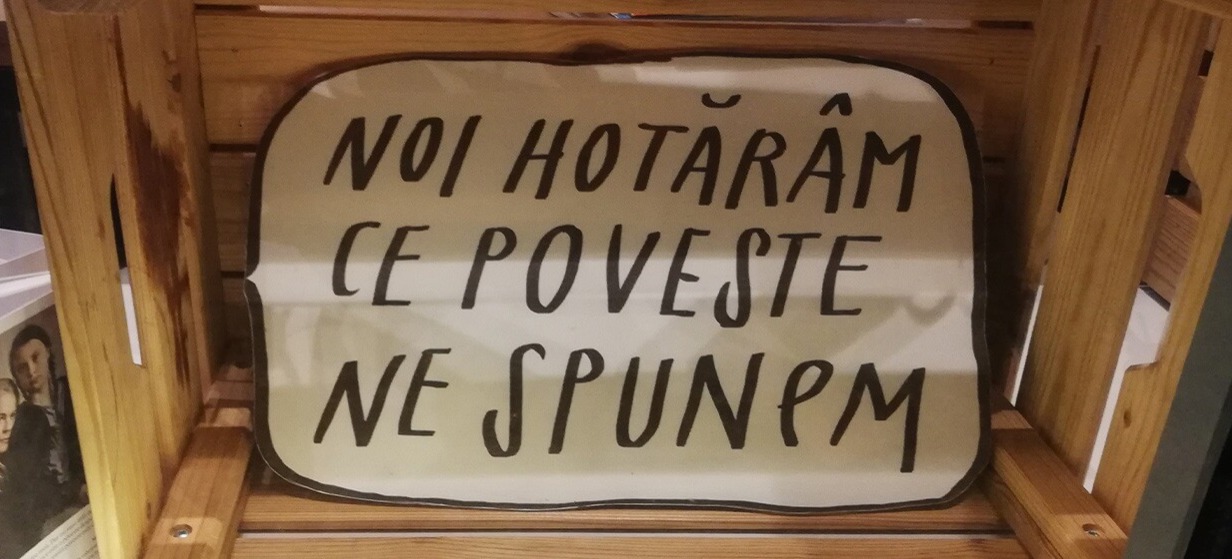 NOI HOTĂRÂM
CE POVESTE
NE SPUNeM